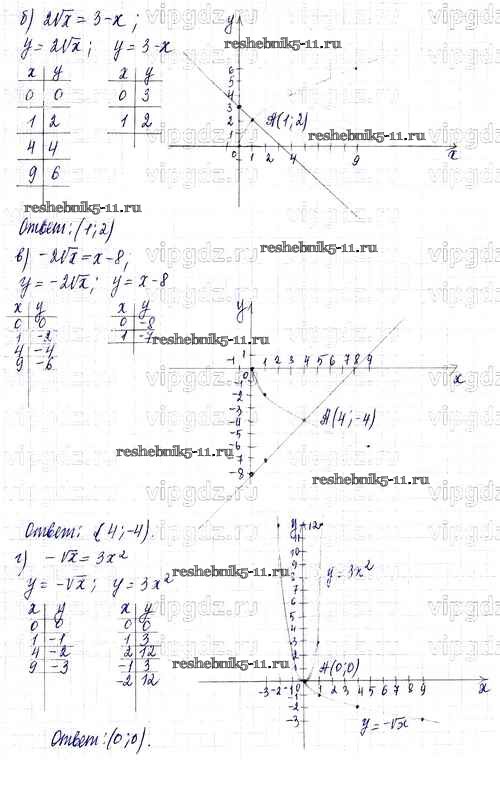 б) 2√x = 3-x ;
y = 2√x ; y = 3-x
x y
0 0
1 2
4 4
9 6
x y
0 3
1 2
y
6
5
4
3
2
1
0 1 2 4 9 x
A(1;2)
Ответ: (1;2)
в) -2√x = x-8;
y = -2√x ; y = x-8
x y
0 0
1 -2
4 -4
9 -6
x y
0 -8
1 -7
y
1
-1 0 1 2 3 4 5 6 7 8 9 x
-1
-2
-3
-4
-5
-6
-7
-8
A(4;-4)
Ответ: (4;-4).
г) -√x = 3x²
y = -√x ; y = 3x²
x y
0 0
1 -1
4 -2
9 -3
x y
0 0
1 3
2 12
-1 3
-2 12
y 12
11
10
9
8
7
6
5
4
3
2
1
y = 3x²
A(0;0)
-3 -2 -1 0 1 2 3 4 5 6 7 8 9 x
-1
-2
-3
y = -√x
Ответ: (0;0).
reshebnik5-11.ru
reshebnik5-11.ru
reshebnik5-11.ru
reshebnik5-11.ru
reshebnik5-11.ru
reshebnik5-11.ru
reshebnik5-11.ru
reshebnik5-11.ru
reshebnik5-11.ru
vipgdz.ru